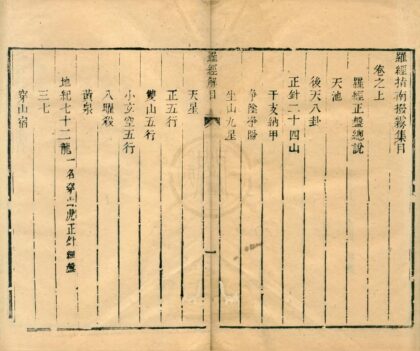 羅經指南撥霧集目
卷之上
羅經正盤總說
天池
後天八卦
正針二十四山
干支納甲
淨陰淨陽
坐山九星
羅經解目
一
天星
正五行
雙山五行
小玄空五行
八曜殺
黃泉
地紀七十二龍一名穿山虎正針經盤
三七
穿山宿